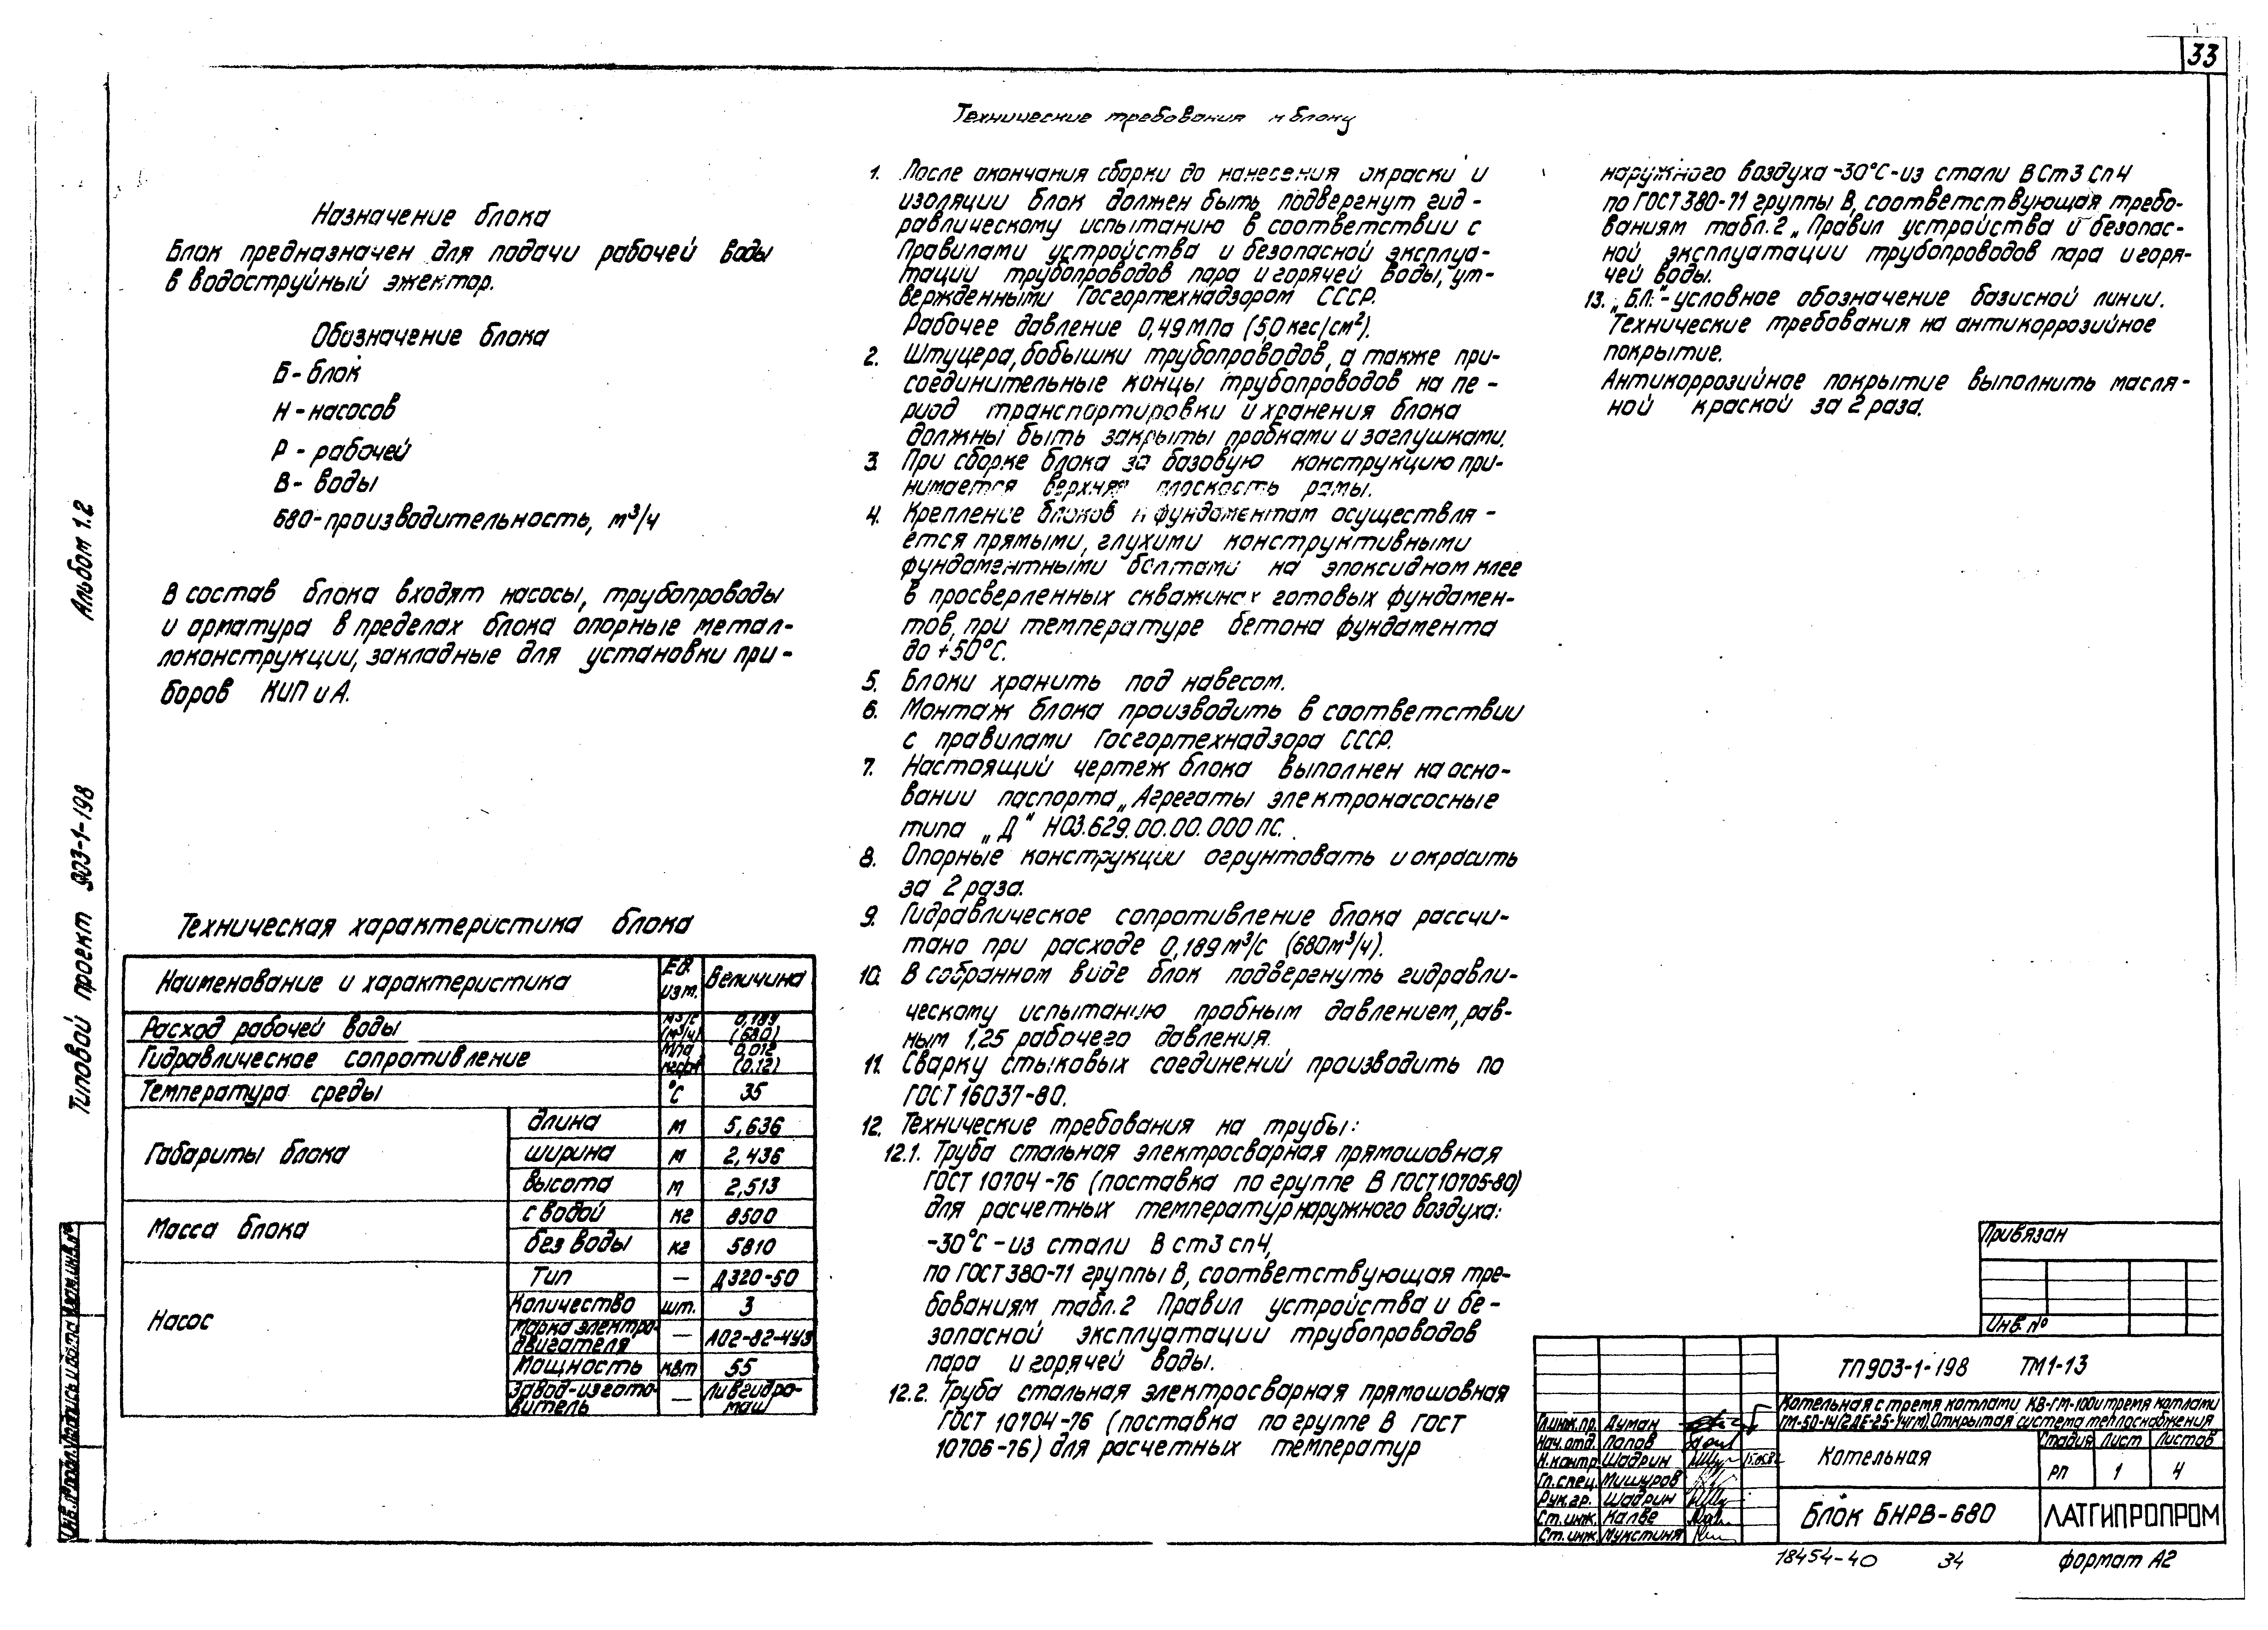 33
Назначение блока
Блок предназначен для подачи рабочей воды
в водоструйный эжектор.
Обозначение блока
Б - блок
Н - насосов
Р - рабочей
В - воды
680-производительность, м³/ч
В состав блока входят насосы, трубопроводы
и арматура в пределах блока опорные метал-
локонструкции, закладные для установки при-
боров КИП и А.
Техническая характеристика блока
Наименование и характеристика Ед. изм. Величина
Расход рабочей воды м³/с (м³/ч) 0,189 (680)
Гидравлическое сопротивление МПа 0,012 (0,12)
Температура среды °С 35
Габариты блока длина м 5,636
ширина м 2,436
высота м 2,513
Масса блока с водой кг 8500
без воды кг 5810
Насос Тип — Д320-50
Количество шт. 3
Марка электро-
двигателя — АО2-82-4У3
Мощность квт 55
Завод-изгото-
витель — Ливгидро-
маш
Технические требования к блоку
1. После окончания сборки до нанесения окраски и
изоляции блок должен быть подвергнут гид-
равлическому испытанию в соответствии с
Правилами устройства и безопасной эксплуа-
тации трубопроводов пара и горячей воды, ут-
вержденными Госгортехнадзором СССР.
Рабочее давление 0,49 МПа (5,0 кгс/см²).
2. Штуцера, бобышки трубопроводов, а также при-
соединительные концы трубопроводов на пе-
риод транспортировки и хранения блока
должны быть закрыты пробками и заглушками.
3. При сборке блока за базовую конструкцию при-
нимается верхняя плоскость рамы.
4. Крепление блоков к фундаментам осуществля-
ется прямыми, глухими конструктивными
фундаментными болтами на эпоксидном клее
в просверленных скважинах готовых фундамен-
тов, при температуре бетона фундамента
до +50°С.
5. Блоки хранить под навесом.
6. Монтаж блока производить в соответствии
с правилами Госгортехнадзора СССР.
7. Настоящий чертеж блока выполнен на осно-
вании паспорта „Агрегаты электронасосные
типа „Д" Н03.629.00.00.000 ПС.
8. Опорные конструкции огрунтовать и окрасить
за 2 раза.
9. Гидравлическое сопротивление блока рассчи-
тано при расходе 0,189 м³/с (680 м³/ч).
10. В собранном виде блок подвергнуть гидравли-
ческому испытанию пробным давлением, рав-
ным 1,25 рабочего давления.
11. Сварку стыковых соединений производить по
ГОСТ 16037-80.
12. Технические требования на трубы:
12.1. Труба стальная электросварная прямошовная
ГОСТ 10704-76 (поставка по группе В ГОСТ 10705-80)
для расчетных температур наружного воздуха:
-30°С - из стали В ст3 сп4,
по ГОСТ 380-71 группы В, соответствующая тре-
бованиям табл. 2 Правил устройства и бе-
зопасной эксплуатации трубопроводов
пара и горячей воды.
12.2. Труба стальная электросварная прямошовная
ГОСТ 10704-76 (поставка по группе В ГОСТ
10706-76) для расчетных температур
наружного воздуха -30°С - из стали ВСт3 Сп4
по ГОСТ 380-71 группы В, соответствующая требо-
ваниям табл. 2 „Правил устройства и безопас-
ной эксплуатации трубопроводов пара и горя-
чей воды.
13. „Б.Л."- условное обозначение базисной линии.
Технические требования на антикоррозийное
покрытие.
Антикоррозийное покрытие выполнить масля-
ной краской за 2 раза.
Типовой проект 903-1-198 Альбом 1.2
Инв. № подл. Подпись и дата Взам. инв. №
Привязан
Инв. №
ТП 903-1-198 ТМ1-13
Котельная с тремя котлами КВ-ГМ-100 и тремя котлами
ГМ-50-14 (ГДЕ-25-14ГМ). Открытая система теплоснабжения
Гл.инж.пр. Думан
Нач.отд. Попов
Н.контр. Шадрин
Гл.спец. Мишуров
Рук.гр. Шадрин
Ст.инж. Калве
Ст.инж. Мукстиня
Котельная
Стадия Лист Листов
РП 1 4
Блок БНРВ-680
ЛАТГИПРОПРОМ
18454-40 34 формат А2